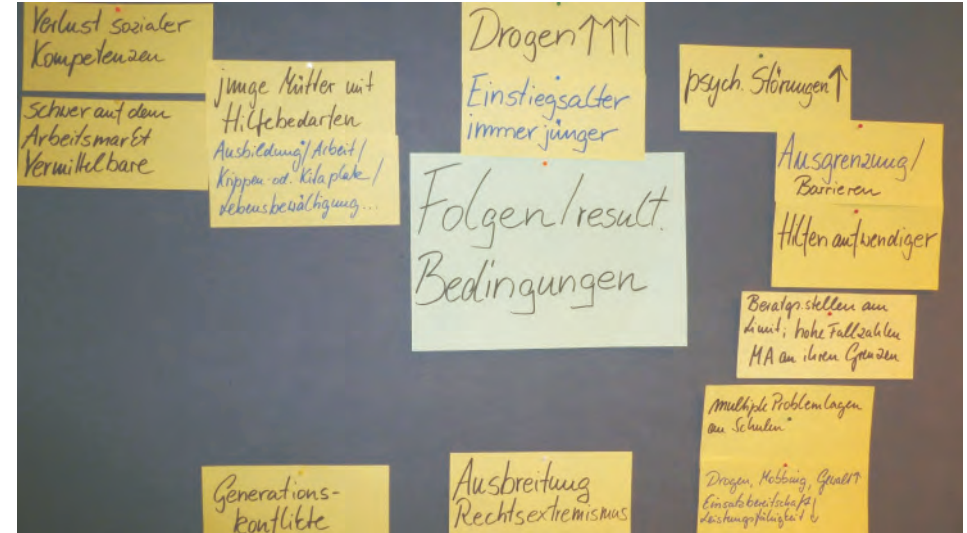 Verlust sozialer
Kompetenzen
schwer auf dem
Arbeitsmarkt
Vermittelbare
junge Mütter mit
Hilfebedarfen
Ausbildung/Arbeit/
Krippen- od. Kitaplatz/
Lebensbewältigung...
Drogen↑↑↑
Einstiegsalter
immer jünger
Folgen/result.
Bedingungen
psych. Störungen↑
Ausgrenzung/
Barrieren
Hilfen aufwendiger
Beratgs.stellen am
Limit; hohe Fallzahlen
MA an ihren Grenzen
multiple Problemlagen
an Schulen
Drogen, Mobbing, Gewalt↑
Einsatzbereitschaft/
Leistungsfähigkeit↓
Generations-
konflikte
Ausbreitung
Rechtsextremismus